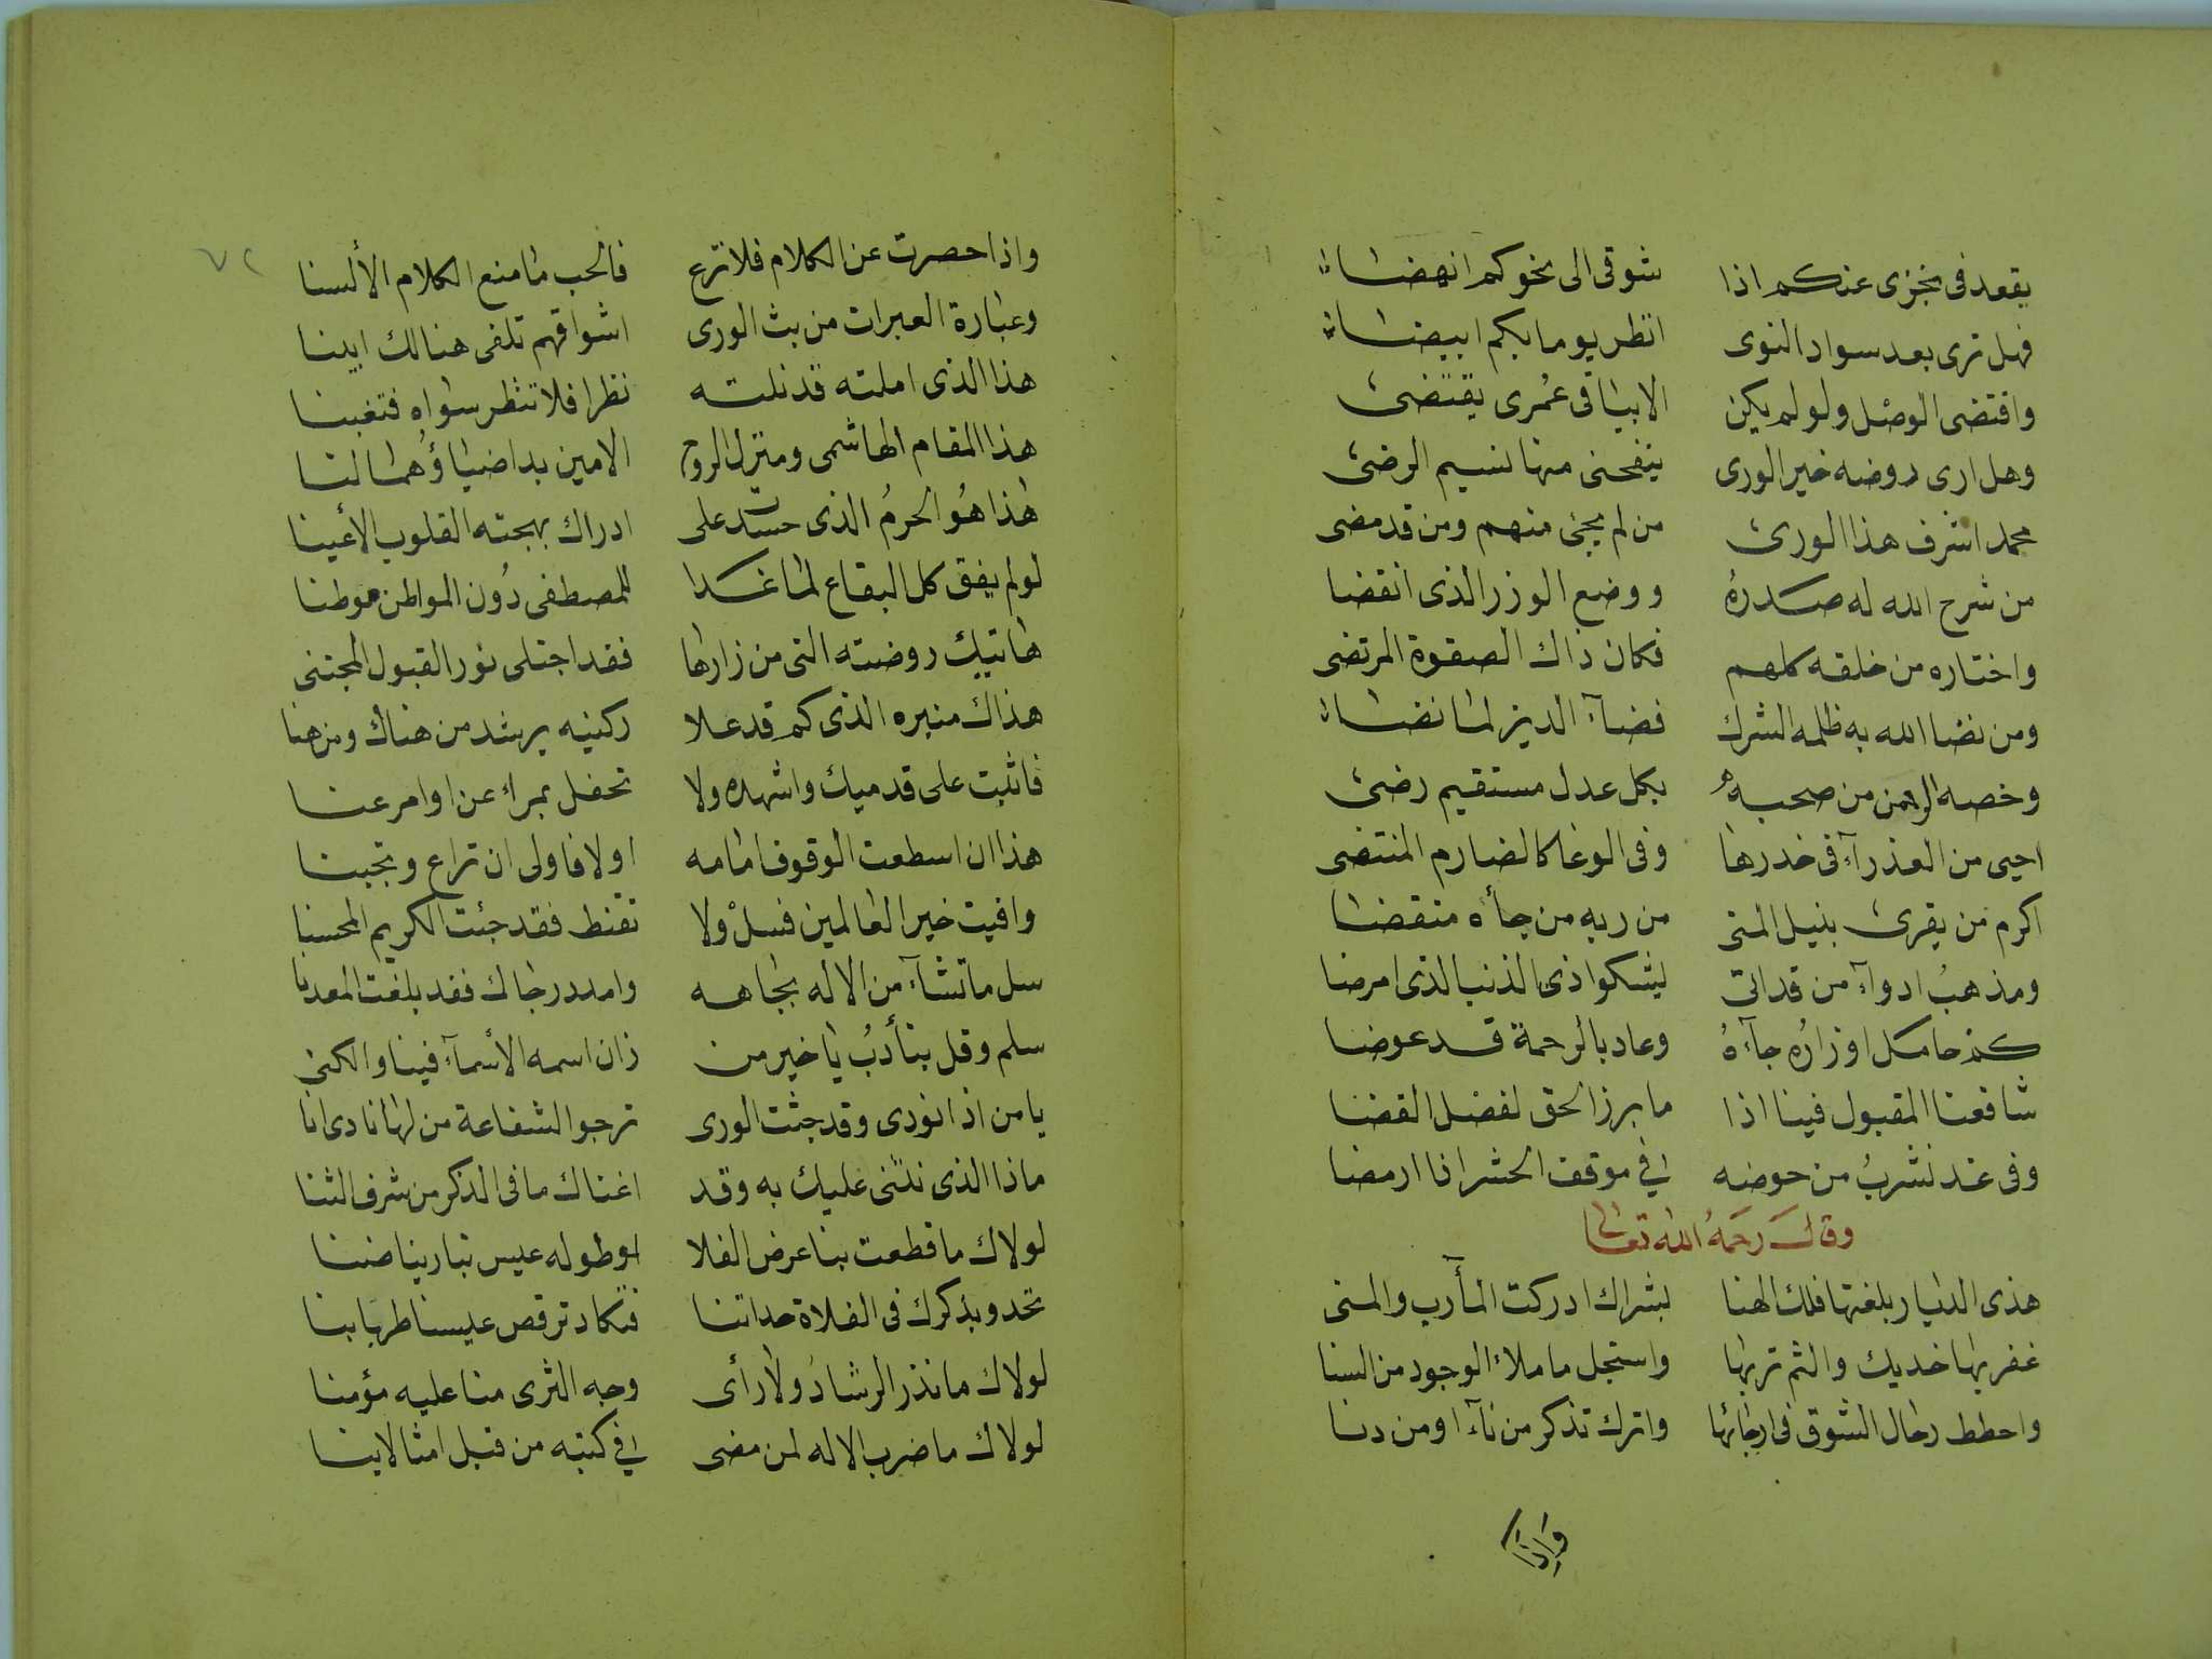 يقعد فى عجزى عنكم اذا شوقى الى نحوكم انهضا
فهل ترى بعد سواد النوى انظر يوما بكم ابيضا
واقتضى الوصل ولو لم يكن الا بباقى عمرى يقتضى
وهل ارى روضه خير الورى ينفحنى منها نسيم الرضى
محمد اشرف هذا الورى من لم يجئ منهم ومن قد مضى
من شرح الله له صدره ووضع الوزر الذى انقضا
واختاره من خلقه كلهم فكان ذاك الصفوة المرتضى
ومن نضا الله به ظلمه الشرك فضآء الدين لما نضا
وخصه الرحمن من صحبه بكل عدل مستقيم رضى
احيى من العذرآء فى خدرها وفى الوغا كالصارم المنتضى
اكرم من يقرى بنيل المنى من ربه من جأه منقضا
ومذهب ادوآء من قد اتى ليشكو اذى الذنب الذى امرضا
كم حامل اوزاره جآءه وعاد بالرحمة قد عوضا
شافعنا المقبول فينا اذا ما برز الحق لفصل القضا
وفى غد نشرب من حوضه فى موقف الحشر اذا ارمضا
وقال رحمه الله تعالى
هذى الديار بلغتها فلك الهنا بشراك ادركت المأرب والمنى
عفر بها خديك والثم تربها واستجل ما ملأ الوجود من السنا
واحطط رحال الشوق فى ارجائها واترك تذكر من نآء او من دنا
واذا
٧٢
واذا حصرت عن الكلام فلا ترع فالحب ما منع الكلام الألسنا
وعبارة العبرات من بث الورى اشواقهم تلفى هنالك ابينا
هذا الذى املته قد نلته نظرا فلا تنظر سواه فتغبنا
هذا المقام الهاشمى ومنزل الروح الامين بدا ضياؤهما لنا
هذا هو الحرم الذى حسدت على ادراك بهجته القلوب الأعينا
لو لم يفق كل البقاع لما غدا للمصطفى دون المواطن موطنا
هاتيك روضته التى من زارها فقد اجتلى نور القبول المجتنى
هذاك منبره الذى كم قد علا ركنيه يرشد من هناك ومن هنا
فاثبت على قدميك واشهده ولا تحفل بمراء عن اوامر عنا
هذا ان اسطعت الوقوف امامه اولا فاولى ان تراع وتجبنا
وافيت خير العالمين فسل ولا تقنط فقد جئت الكريم المحسنا
سل ما تشآء من الاله بجاهه وامدد رجاك فقد بلغت المعدنا
سلم وقل بتأدب يا خير من زان اسمه الأسمآء فينا والكنى
يا من اذا نودى وقد جثت الورى ترجو الشفاعة من لها نادى انا
ماذا الذى نثنى عليك به وقد اغناك ما فى الذكر من شرف الثنا
لولاك ما قطعت بنا عرض الفلا او طوله عيس تبارينا ضنا
تحدو بذكرك فى الفلاة حداتنا فتكاد ترقص عيسنا طربا بنا
لولاك ما نذر الرشاد ولا رأى وجه الثرى منا عليه مؤمنا
لولاك ما ضرب الاله لمن مضى فى كتبه من قبل امثالا بنا